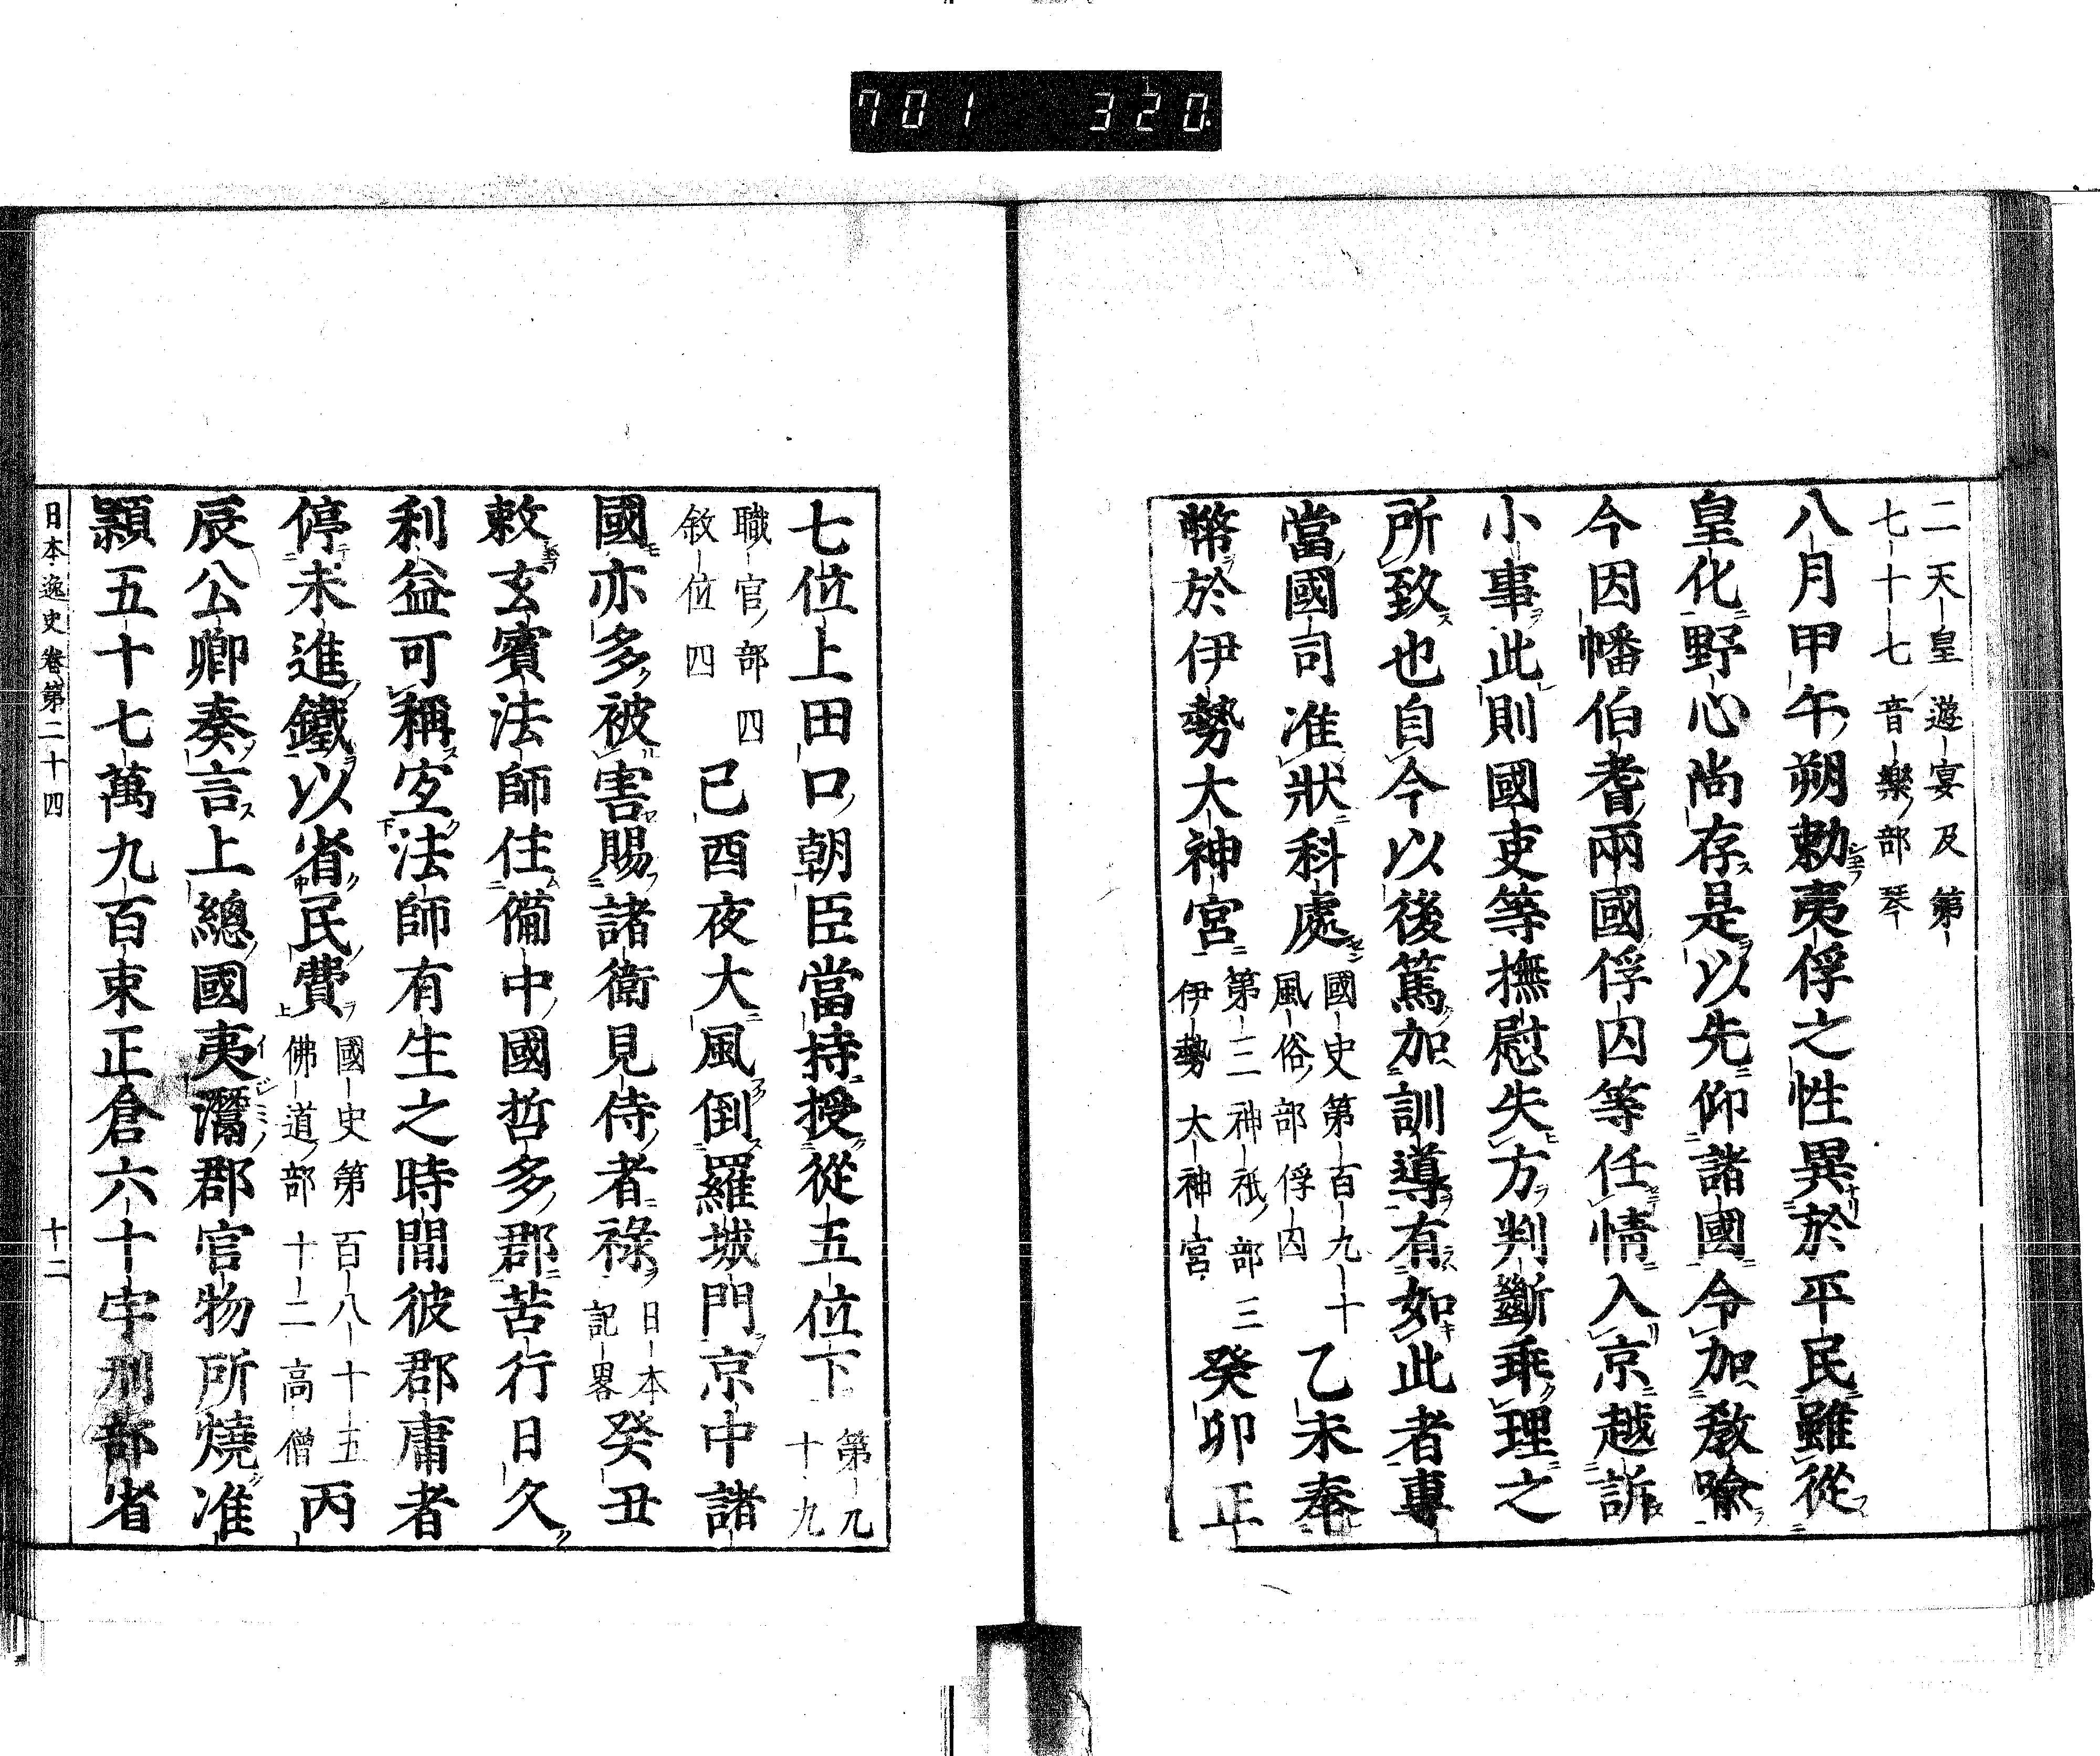 701 320
二天皇遊宴及第
七十七音樂部琴
八月甲午朔勅夷俘之性異於平民雖從
皇化野心尚存是以先仰諸國令加教喩
今因幡伯耆兩國俘囚等任情入京越訴
小事此則國吏等撫慰失方判斷乖理之
所致也自今以後篤加訓導有如此者專
當國司准狀科處
國史第百九十
風俗部俘囚
乙未奉
幣於伊勢大神宮
第三神祇部三
伊勢大神宮
癸卯正
七位上田口朝臣當持授從五位下
第九
十九
職官部四
敘位四
己酉夜大風倒羅城門京中諸
國亦多被害賜諸衛見侍者祿
日本
記畧
癸丑
敕玄賓法師住備中國哲多郡苦行日久
利益可稱宜法師有生之時間彼郡庸者
停未進鐵以省民費
國史第百八十五
佛道部十二高僧
丙
辰公卿奏言上總國夷灊郡官物所燒准
穎五十七萬九百束正倉六十宇刑部省
日本逸史卷第二十四
十二